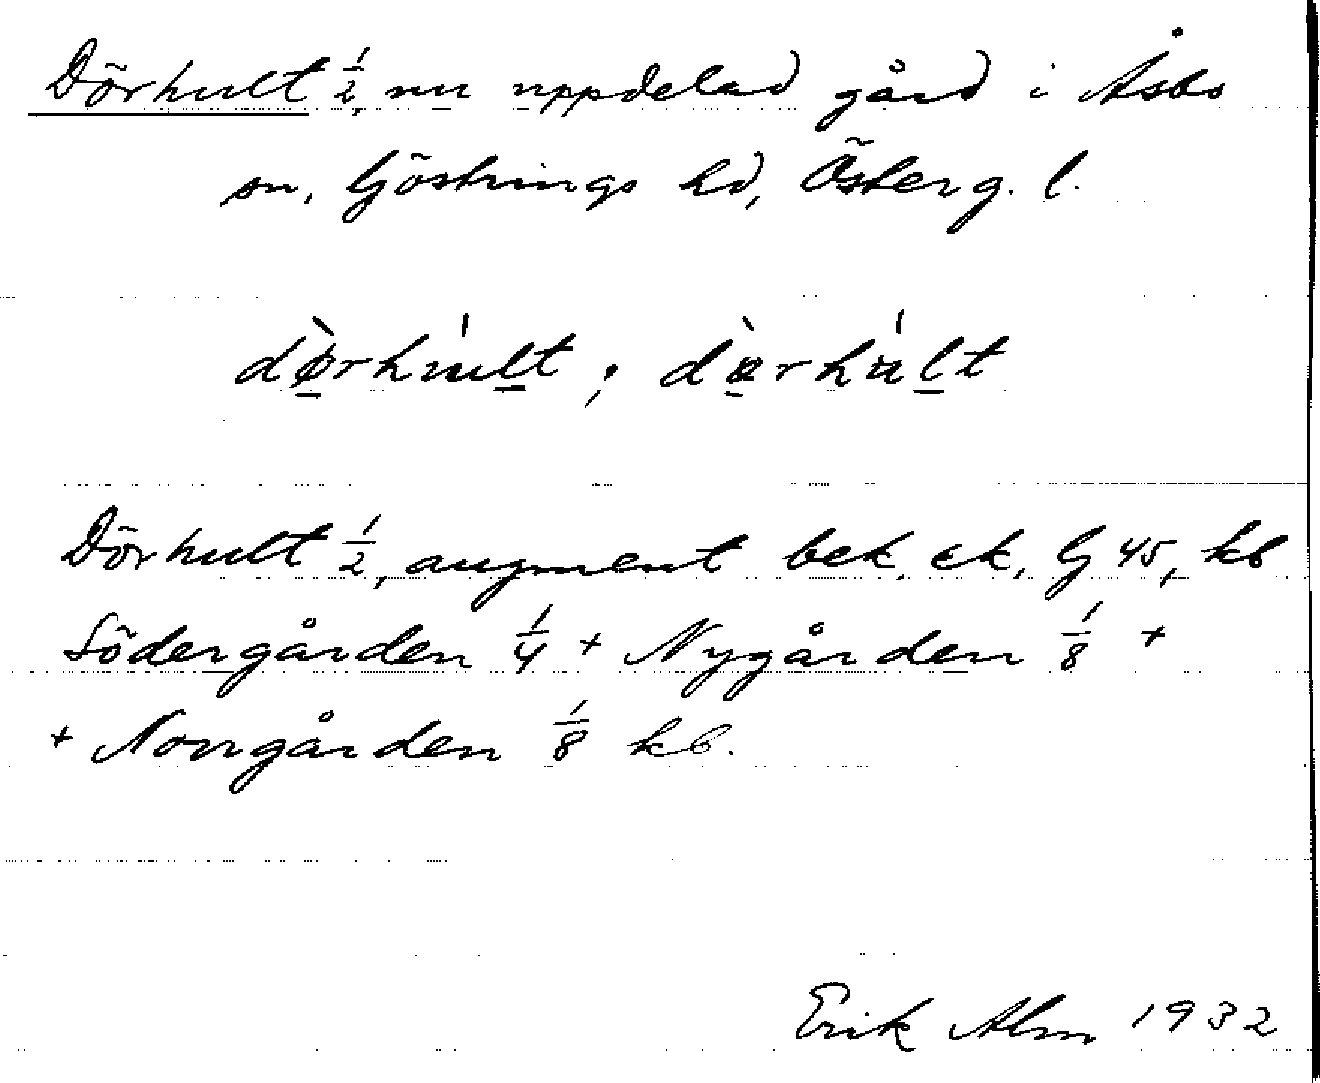 Dörhult 1/2, nu uppdelad gård i Åsbo
sn, Göstrings hd, Österg. l.
dørhult; dørhult
Dörhult 1/2, augment bek. ek. G 45, kb
Södergården 1/4 + Nygården 1/8 +
+ Norrgården 1/8 kb.
Erik Alm 1932